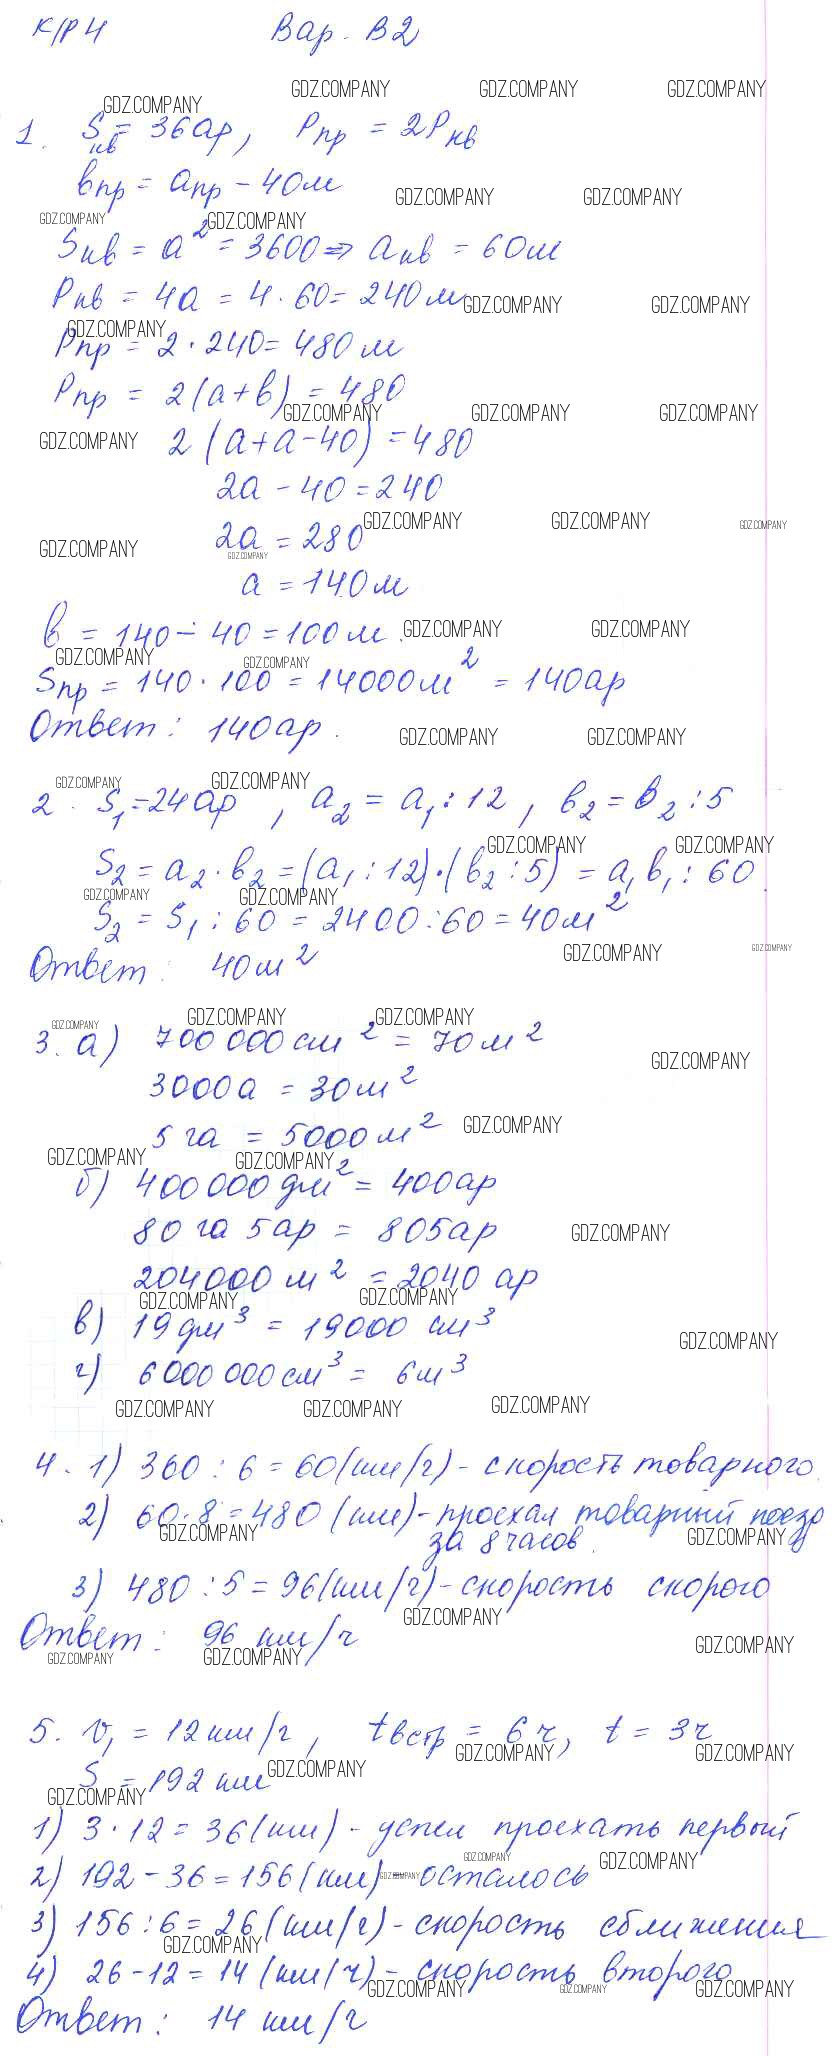 К/Р 4 Вар. В2
1. Sкв = 36ар, Pпр = 2Pкв
bпр = aпр - 40м
Sкв = a² = 3600 => aкв = 60м
Pкв = 4a = 4 · 60 = 240м
Pпр = 2 · 240 = 480м
Pпр = 2(a+b) = 480
2(a+a-40) = 480
2a - 40 = 240
2a = 280
a = 140м
b = 140 - 40 = 100м.
Sпр = 140 · 100 = 14000м² = 140ар
Ответ: 140ар.
2. S₁ = 24ар, a₂ = a₁ : 12, b₂ = b₂ : 5
S₂ = a₂ · b₂ = (a₁ : 12) · (b₂ : 5) = a₁b₁ : 60.
S₂ = S₁ : 60 = 2400 : 60 = 40м²
Ответ: 40м²
3. а) 700 000см² = 70м²
3000а = 30м²
5га = 5000м²
б) 400 000дм² = 400ар
80га 5ар = 805ар
204000м² = 2040 ар
в) 19дм³ = 19000 см³
г) 6000 000см³ = 6м³
4. 1) 360 : 6 = 60(км/ч) - скорость товарного.
2) 60 · 8 = 480 (км) - проехал товарный поезд
за 8 часов.
3) 480 : 5 = 96(км/ч) - скорость скорого
Ответ: 96 км/ч
5. v₁ = 12км/ч, tвстр = 6ч, t = 3ч
S = 192 км
1) 3 · 12 = 36(км) - успел проехать первый
2) 192 - 36 = 156(км) - осталось
3) 156 : 6 = 26(км/ч) - скорость сближения
4) 26 - 12 = 14(км/ч) - скорость второго
Ответ: 14 км/ч
GDZ.COMPANY